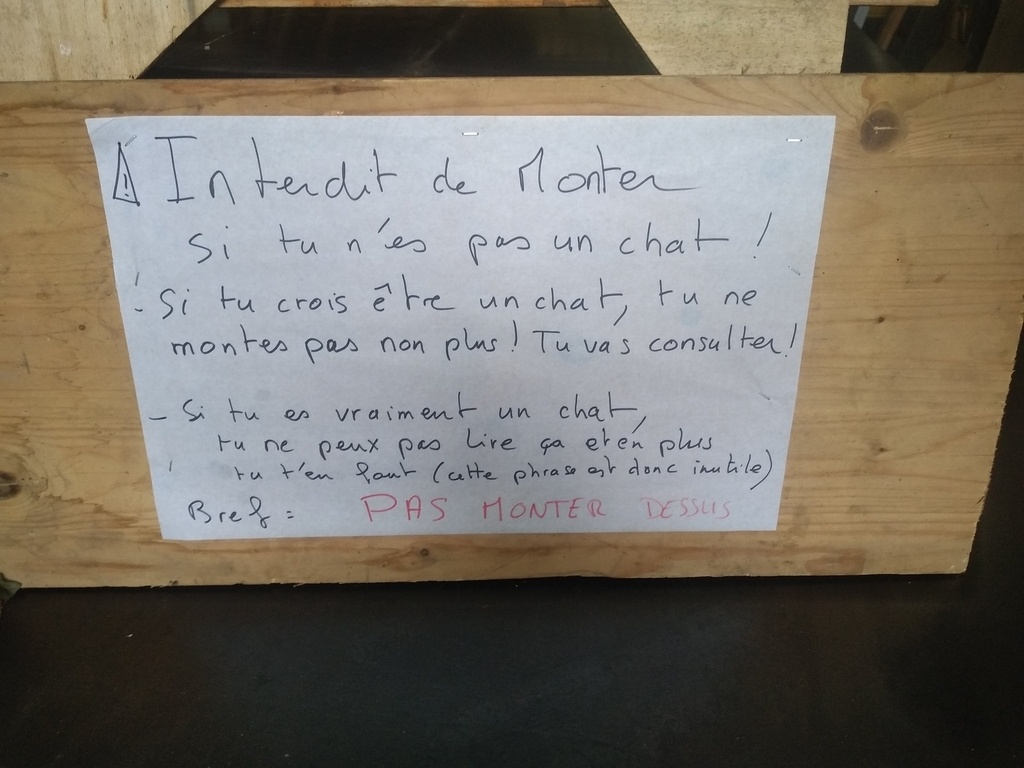 ⚠ Interdit de Monter
si tu n'es pas un chat !
- Si tu crois être un chat, tu ne
montes pas non plus ! Tu vas consulter !
- Si tu es vraiment un chat,
tu ne peux pas lire ça et en plus
tu t'en fout (cette phrase est donc inutile)
Bref : PAS MONTER DESSUS